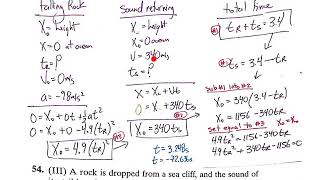 falling Rock
X₀ = height
X = 0 at ocean
t_R = ?
V₀ = 0 m/s
a = -9.8 m/s²
X = X₀ + v₀t + ½at²
0 = X₀ + 0 - 4.9(t_R)²
X₀ = 4.9(t_R)²
Sound returning
X = height
X₀ = 0 ocean
V = 340 m/s
t_s = ?
X = X₀ + Vt
0 = X₀ + 340t_s
X₀ = 340t_s
t = 3.24s
t = -72.63s
total time
#1 t_R + t_s = 3.4
t_s = 3.4 - t_R
Sub #1 into #2
X₀ = 340(3.4 - t_R)
X₀ = 1156 - 340t_R
Set equal to #3 X₀ = X₀
4.9t_R² = 1156 - 340t_R
4.9t_R² + 340t_R - 1156 = 0
54. (III) A rock is dropped from a sea cliff, and the sound of